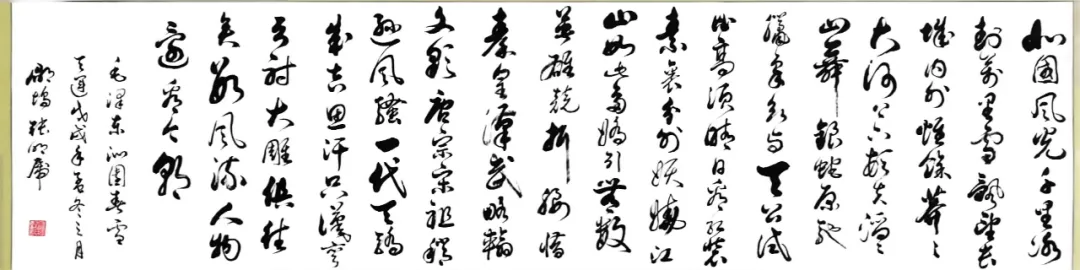 北國风光千里冰
封萬里雪飘望长
城内外惟餘莽々
大河上下顿失滔々
山舞銀蛇原驰
臘象欲与天公试
比高须晴日看红装
素裹分外妖娆江
山如此多嬌引無数
英雄競折腰惜
秦皇漢武略輸
文彩唐宗宋祖稍
逊風骚一代天骄
成吉思汗只識弯
弓射大雕俱往
矣数風流人物
还看今朝
毛澤东沁園春雪
天運戊戌年孟冬三月
張明